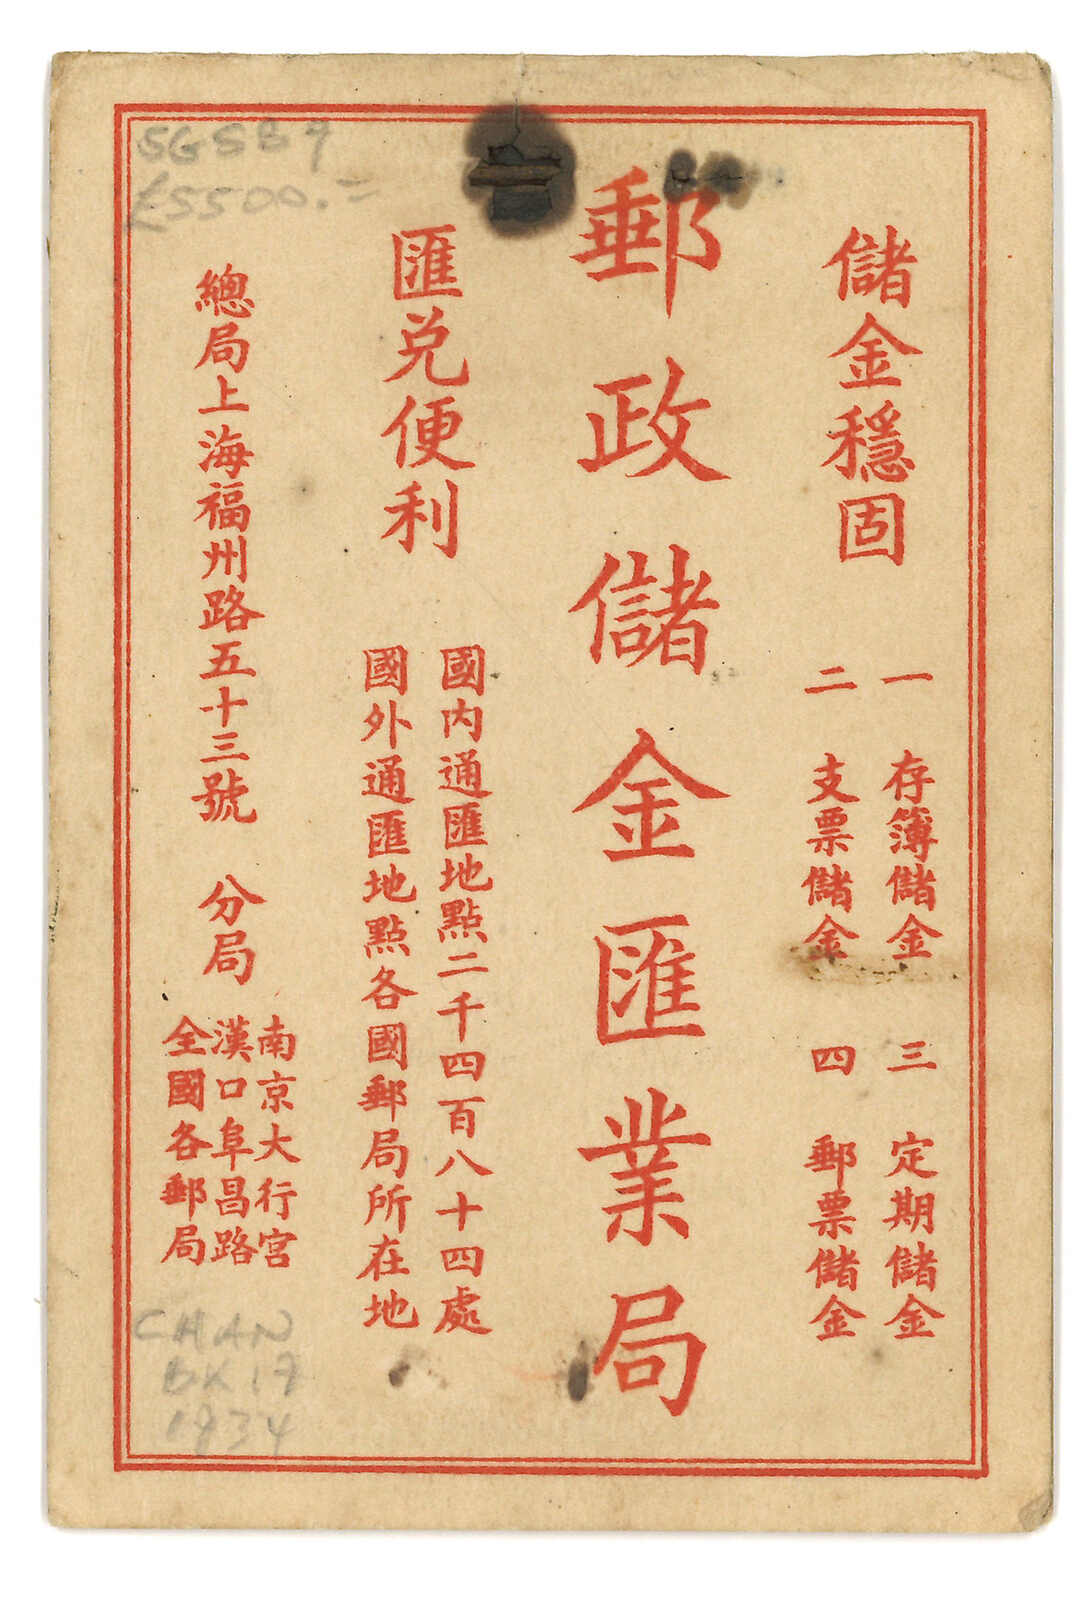 儲金穩固
一 存簿儲金 三 定期儲金
二 支票儲金 四 郵票儲金
郵政儲金匯業局
匯兌便利
國內通匯地點二千四百八十四處
國外通匯地點各國郵局所在地
總局上海福州路五十三號 分局
南京大行宮
漢口阜昌路
全國各郵局
SGSB9
£5500.=
CHAN
BK17
1934